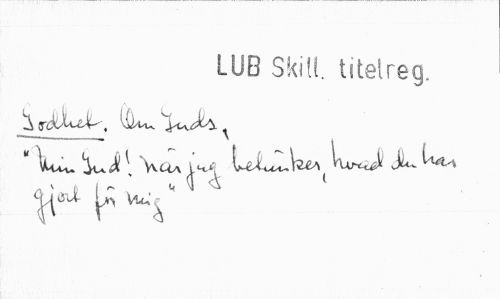 LUB Skill. titelreg.
Godhet. Om Guds,
"Min Gud! när jag betänker, hvad du har
gjort för mig"